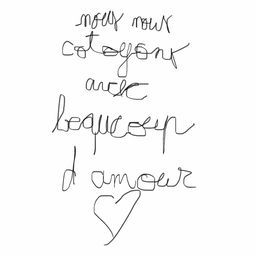 nous nous
cotoyons
avec
beaucoup
d amour